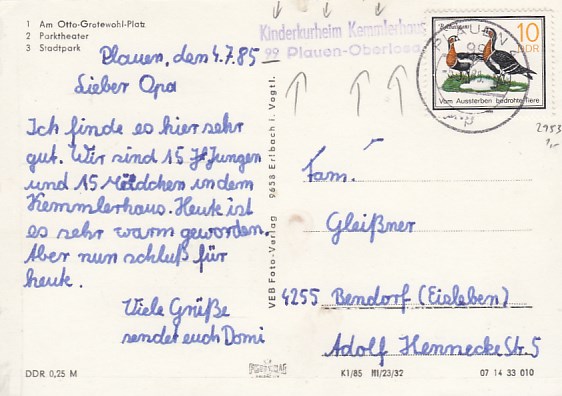 1 Am Otto-Grotewohl-Platz
2 Parktheater
3 Stadtpark
Plauen, den 4.7.85
Lieber Opa
Ich finde es hier sehr
gut. Wir sind 15 Jungen
und 15 Mädchen in dem
Kemmlerhaus. Heute ist
es sehr warm geworden.
Aber nun schluß für
heute.
Viele Grüße
sendet euch Domi
DDR 0,25 M
VEB Foto-Verlag 9658 Erlbach i. Vogtl.
Kinderkurheim Kemmlerhaus
99 Plauen-Oberlosa
PLAUEN
99
10
DDR
Vom Aussterben bedrohte Tiere
2953
1,-
Fam.
Gleißner
4255 Bendorf (Eisleben)
Adolf Hennecke Str. 5
K1/85 III/23/32
07 14 33 010